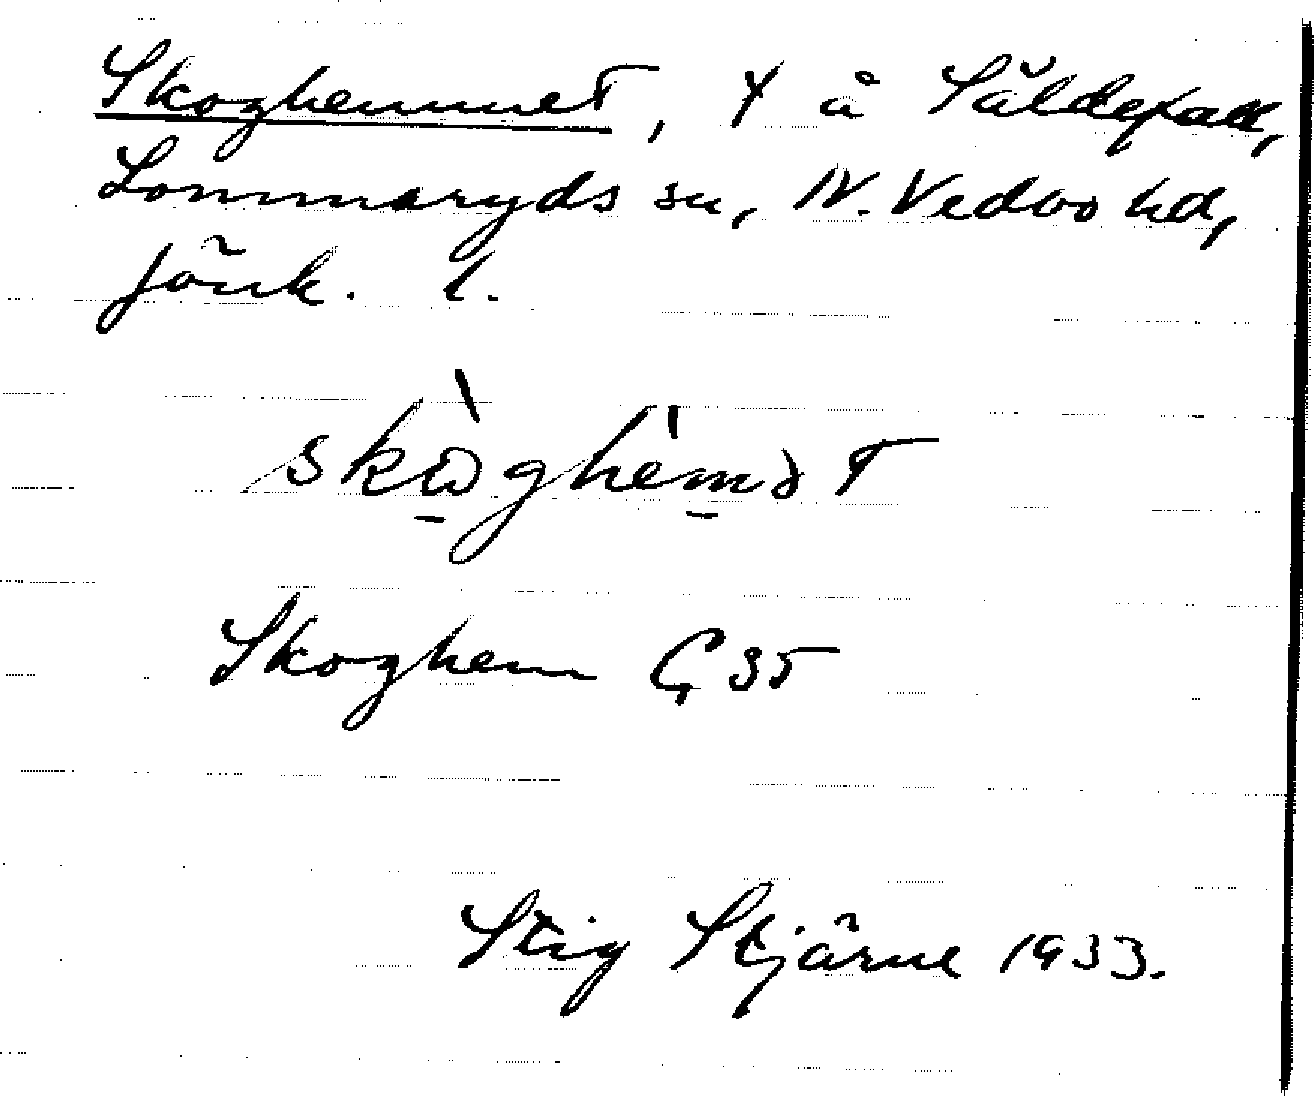 Skoghemmet, t å Säldefall,
Lommaryds sn, N. Vedbo hd,
Jönk. l.
skòghemət
Skoghem G 35
Stig Stjärne 1933.